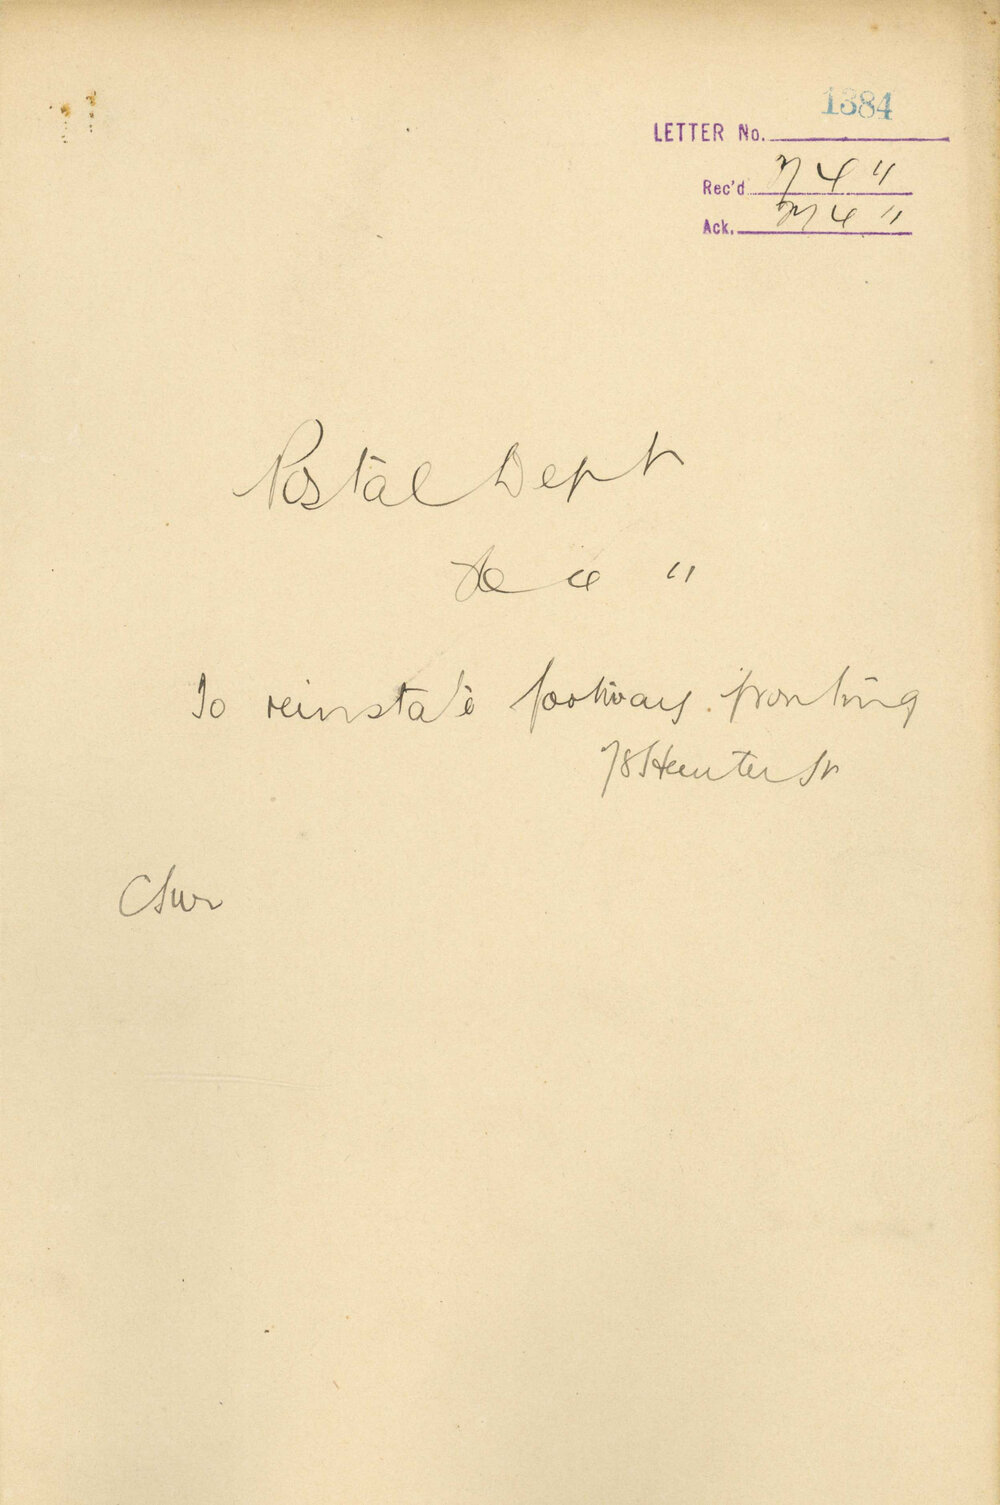 1384
LETTER No.
Rec'd 7 4 11
Ack. 4 11
Postal Dept
4 11
To reinstate footways fronting
78 Hunter St